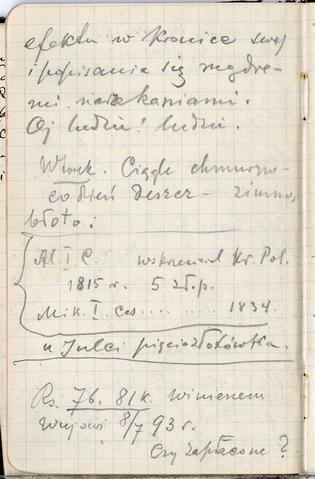 efektu w kronice swej
i popisania się mądre-
mi narzekaniami.
Oj ludzie! ludzie.
Wtorek. Ciągle chmurno-
codzień deszcz - zimno,
błoto.
Al. I C. wskrzesiciel Kr. Pol.
1815 r. 5 zł.p.
Mik. I. Ces......... 1834.
u Julci pięciozłotówka.
Rs. 76. 81 k. winienem
Wujowi 8/7 93 r.
Czy zapłacone?